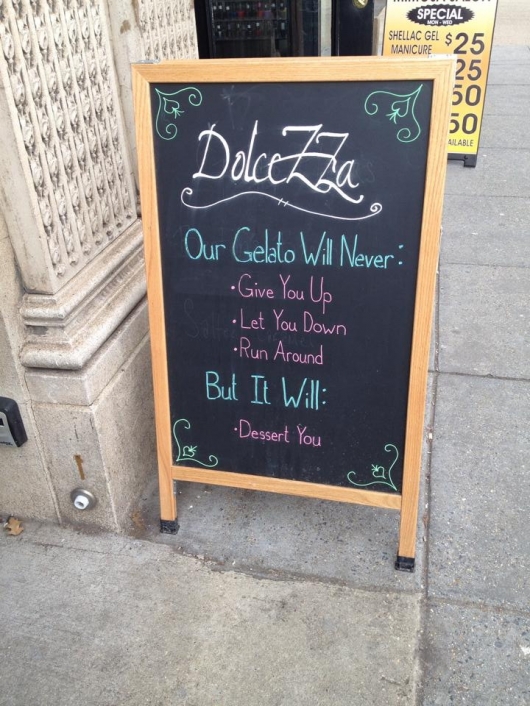 SPECIAL
MON - WED
SHELLAC GEL
MANICURE
$25
25
50
50
AILABLE
DolceZZa
Our Gelato Will Never:
• Give You Up
• Let You Down
• Run Around
But It Will:
• Dessert You